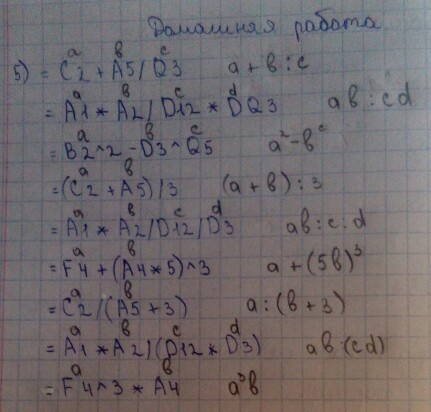 Домашняя работа
a b c
5) = C2 + A5 / Q3 a + b : c
a b c d
= A1 * A2 / D12 * DQ3 ab : cd
a b c
= B2^2 - D3^Q5 a² - bᶜ
a b
= (C2 + A5) / 3 (a + b) : 3
a b c d
= A1 * A2 / D12 / D3 ab : c : d
a b
= F4 + (A4 * 5)^3 a + (5b)³
a b
= C2 / (A5 + 3) a : (b + 3)
a b c d
= A1 * A2 / (D12 * D3) ab : (cd)
a b
= F4^3 * A4 a³b